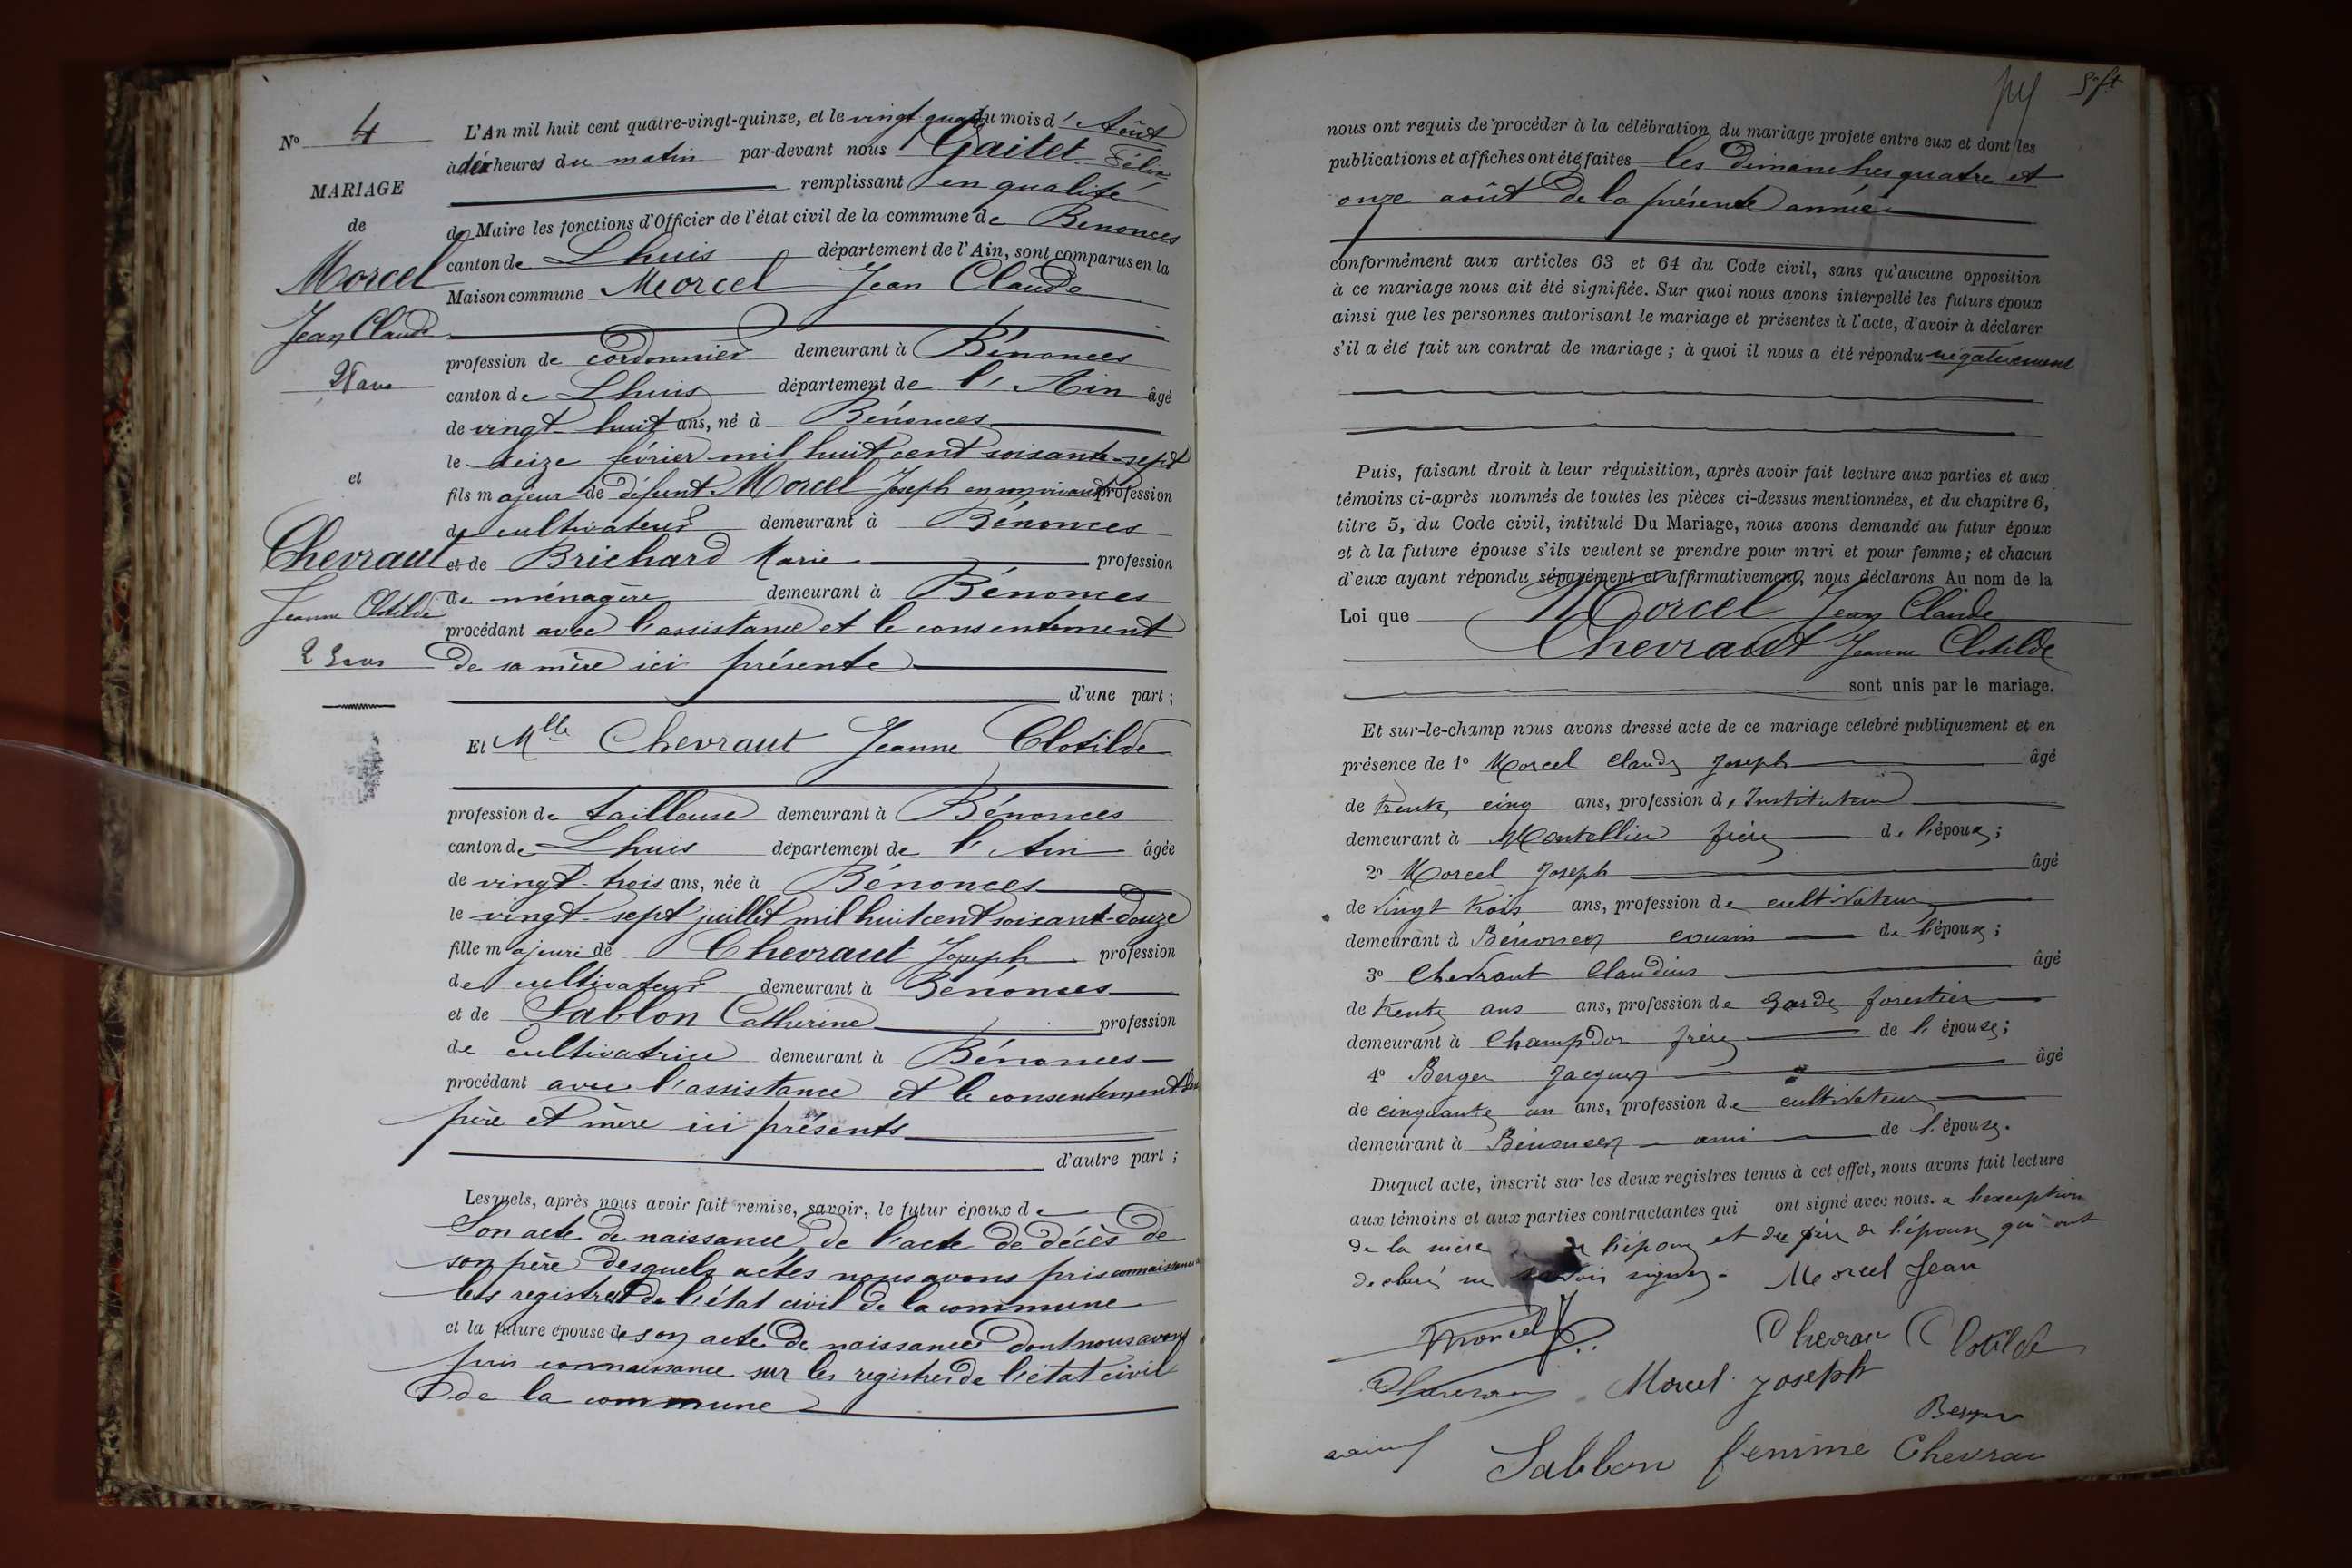 N° 4
MARIAGE
de
Morcel
Jean Claude
28 ans
et
Chevraut
Jeanne Clotilde
23 ans
L'An mil huit cent quatre-vingt-quinze, et le vingt quatre du mois d' Août
à dix heures du matin par-devant nous Gaitet Félix
remplissant en qualité
de Maire les fonctions d'Officier de l'état civil de la commune de Benonces
canton de Lhuis département de l'Ain, sont comparus en la
Maison commune Morcel Jean Claude
profession de cordonnier demeurant à Bénonces
canton de Lhuis département de l'Ain âgé
de vingt-huit ans, né à Bénonces
le seize février mil huit cent soixante-sept
fils majeur de défunt Morcel Joseph en son vivant profession
de cultivateur demeurant à Bénonces
et de Brichard Marie profession
de ménagère demeurant à Bénonces
procédant avec l'assistance et le consentement
de sa mère ici présente
d'une part ;
Et Mlle Chevraut Jeanne Clotilde
profession de tailleuse demeurant à Bénonces
canton de Lhuis département de l'Ain âgée
de vingt-trois ans, née à Bénonces
le vingt-sept juillet mil huit cent soixante-douze
fille majeure de Chevraut Joseph profession
de cultivateur demeurant à Bénonces
et de Sablon Catherine profession
de cultivatrice demeurant à Bénonces
procédant avec l'assistance et le consentement de ses
père et mère ici présents
d'autre part ;
Lesquels, après nous avoir fait remise, savoir, le futur époux de
Son acte de naissance de l'acte de décès de
son père desquels actes nous avons pris connaissance
les registres de l'état civil de la commune
et la future épouse de son acte de naissance dont nous avons
pris connaissance sur les registres de l'état civil
de la commune
nous ont requis de procéder à la célébration du mariage projeté entre eux et dont les
publications et affiches ont été faites les dimanches quatre et
onze août de la présente année
conformément aux articles 63 et 64 du Code civil, sans qu'aucune opposition
à ce mariage nous ait été signifiée. Sur quoi nous avons interpellé les futurs époux
ainsi que les personnes autorisant le mariage et présentes à l'acte, d'avoir à déclarer
s'il a été fait un contrat de mariage ; à quoi il nous a été répondu négativement
Puis, faisant droit à leur réquisition, après avoir fait lecture aux parties et aux
témoins ci-après nommés de toutes les pièces ci-dessus mentionnées, et du chapitre 6,
titre 5, du Code civil, intitulé Du Mariage, nous avons demandé au futur époux
et à la future épouse s'ils veulent se prendre pour mari et pour femme ; et chacun
d'eux ayant répondu séparément et affirmativement, nous déclarons Au nom de la
Loi que Morcel Jean Claude
Chevraut Jeanne Clotilde
sont unis par le mariage.
Et sur-le-champ nous avons dressé acte de ce mariage célébré publiquement et en
présence de 1° Morcel Claude Joseph âgé
de trente cinq ans, profession d'Instituteur
demeurant à Montellier frère de l'époux ;
2° Morcel Joseph âgé
de vingt trois ans, profession de cultivateur
demeurant à Bénonces cousin de l'époux ;
3° Chevraut Claudius âgé
de trente ans ans, profession de garde forestier
demeurant à Champdor frère de l'épouse ;
4° Berger Jacques âgé
de cinquante un ans, profession de cultivateur
demeurant à Bénonces ami de l'épouse.
Duquel acte, inscrit sur les deux registres tenus à cet effet, nous avons fait lecture
aux témoins et aux parties contractantes qui ont signé avec nous. a l'exception
de la mère de l'époux et du père de l'épouse qui ont
déclaré ne savoir signer. Morcel Jean
Morcel
Chevrau Clotilde
Morcel Joseph
Berger
Sabbon femme Chevrau